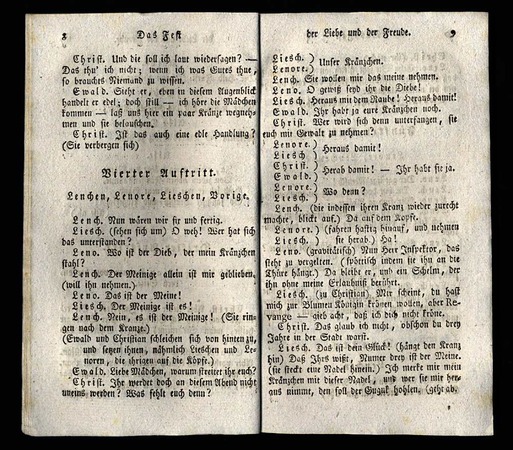 8 Das Fest
Christ. Und die soll ich laut wiedersagen? —
Das thu' ich nicht; wenn ich was Gutes thue,
so brauchts Niemand zu wissen.
Ewald. Sieht er, eben in diesem Augenblick
handelt er edel; doch still — ich höre die Mädchen
kommen — laß uns hier ein paar Kränze wegneh-
men und sie belauschen.
Christ. Ist das auch eine edle Handlung?
(Sie verbergen sich)
Vierter Auftritt.
Lenchen, Lenore, Lieschen, Vorige.
Lench. Nun wären wir fir und fertig.
Liesch. (sehen sich um) O weh! Wer hat sich
das unterstanden?
Leno. Wo ist der Dieb, der mein Kränzchen
stahl?
Lench. Der Meinige allein ist mir geblieben.
(will ihn nehmen.)
Leno. Das ist der Meine!
Liesch. Der Meinige ist es!
Lench. Nein, es ist der Meinige! (Sie rin-
gen nach dem Kranze.)
(Ewald und Christian schleichen sich von hinten zu,
und setzen ihnen, nähmlich Lieschen und Le-
noren, die ihrigen auf die Köpfe.)
Ewald. Liebe Mädchen, warum streitet ihr euch?
Christ. Ihr werdet doch an diesem Abend nicht
uneins werden? Was fehlt euch denn?
der Liebe und der Freude. 9
Liesch. )
Lenore. ) Unser Kränzchen.
Lench. Sie wollen mir das meine nehmen.
Leno. O gewiß seyd ihr die Diebe!
Liesch. Heraus mit dem Raube! Heraus damit!
Ewald. Ihr habt ja eure Kränzchen noch.
Christ. Wer wird sich denn unterfangen, sie
euch mit Gewalt zu nehmen?
Lenore. )
Liesch ) Heraus damit!
Christ. )
Ewald. ) Herab damit! — Ihr habt sie ja.
Lenore. )
Liesch ) Wo denn?
Lench. (die indessen ihren Kranz wieder zurecht
machte, blickt auf.) Da auf dem Kopfe.
Lenore. ) (fahren hastig hinauf, und nehmen
Liesch. ) sie herab.) Ha!
Leno. (gravitätisch) Nun Herr Inspektor, das
steht zu vergelten. (Indessen sie ihn an die
Thüre hängt.) Da bleibe er, und ein Schelm, der
ihn ohne meine Erlaubniß berührt.
Liesch. (zu Christian) Mir scheine, du hast
mich zur Blumen Königin krönen wollen, aber Re-
vange — gieb acht, daß ich dich nicht kröne.
Christ. Das glaub ich nicht, obschon du drey
Jahre in der Stadt warst.
Liesch. Das ist dein Glück! (hängt den Kranz
hin) Daß Ihrs wißt, Numer drey ist der Meine.
(sie steckt eine Nadel hinein.) Ich merke mir mein
Kränzchen mit dieser Nadel, und wer sie mir her-
aus nimmt, den soll der Guguk hohlen. (geht ab.